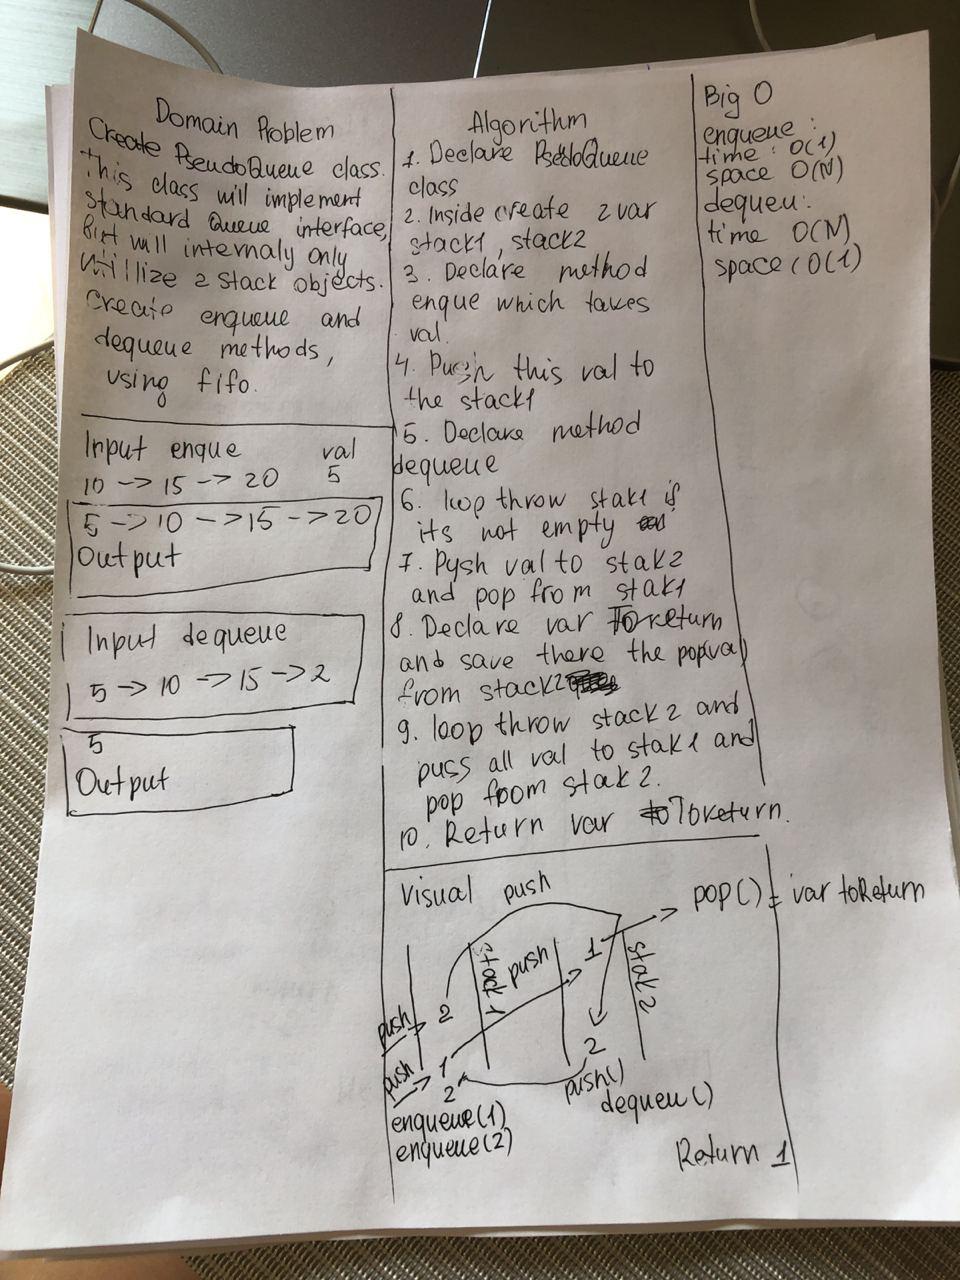 Domain Problem
Create PseudoQueue class.
This class will implement
standard Queue interface,
But will internaly only
utillize 2 stack objects.
Create enqueue and
dequeue methods,
using fifo.
Input enque val
10 -> 15 -> 20 5
5 -> 10 -> 15 -> 20
Output
Input dequeue
5 -> 10 -> 15 -> 2
5
Output
Algorithm
1. Declare PseudoQueue
class
2. Inside create 2 var
stack1, stack2
3. Declare method
enque which takes
val.
4. Push this val to
the stack1
5. Declare method
dequeue
6. loop throw stak1 if
its not empty
7. Pysh val to stak2
and pop from stak1
8. Declare var Toreturn
and save there the popval
from stack2
9. loop throw stack2 and
puss all val to stak1 and
pop from stak2.
10. Return var Toreturn.
Visual push
pop() = var toReturn
stack1
push
1
stak2
push 2
push 1
2
2
push()
dequeu()
enqueue(1)
enqueue(2)
Return 1
Big O
enqueue :
time : O(1)
space O(N)
dequeu:
time O(N)
space (O(1)